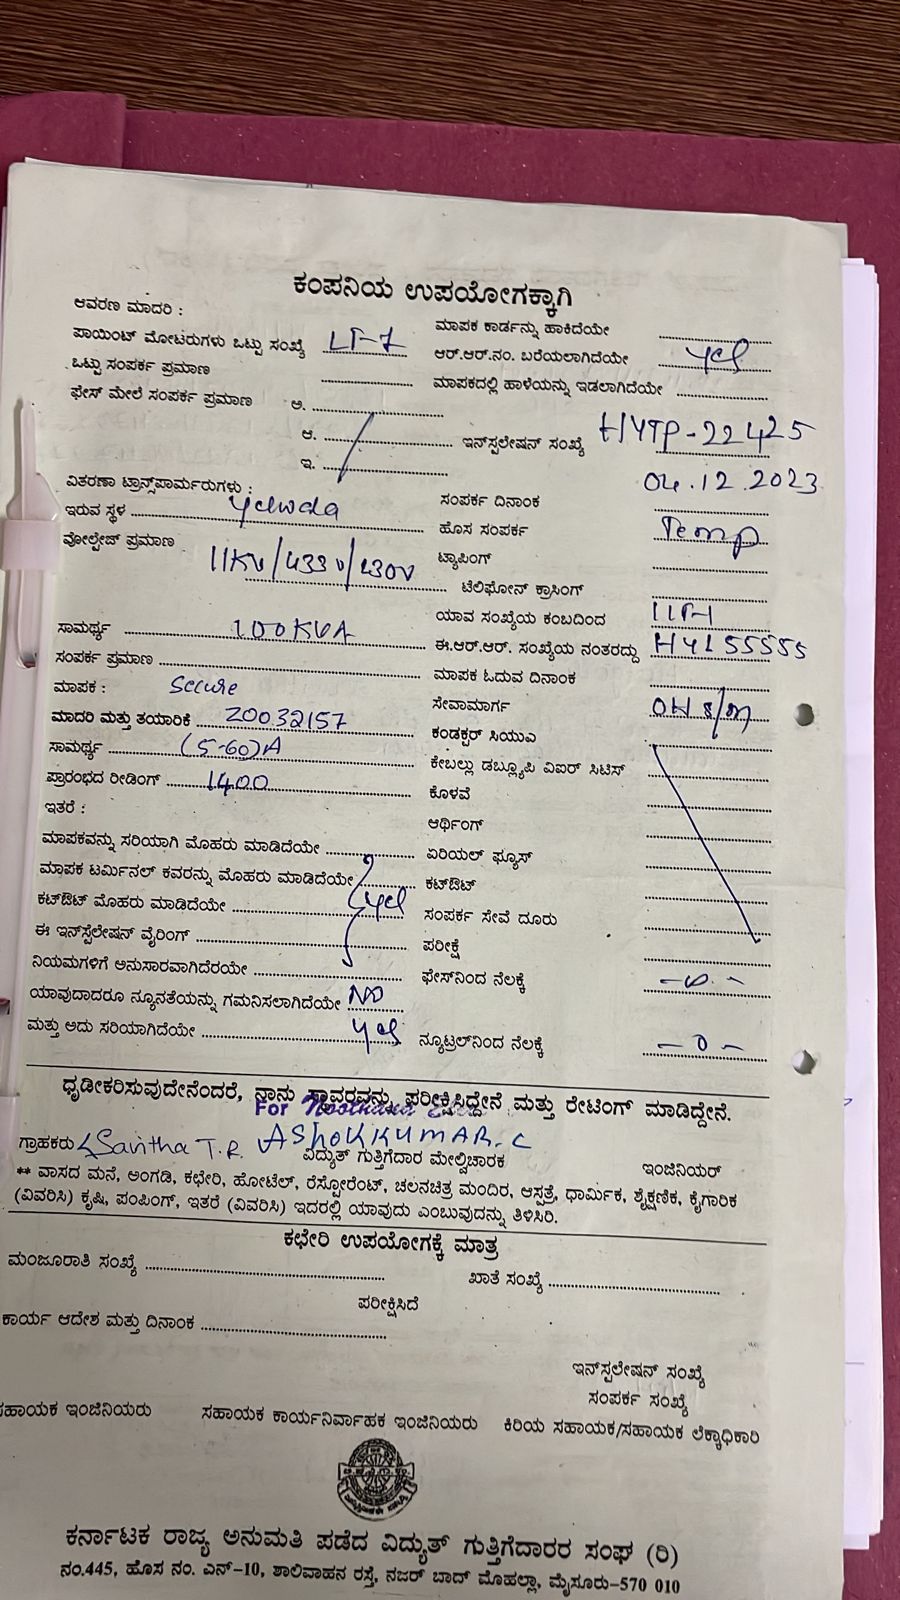 ಕಂಪನಿಯ ಉಪಯೋಗಕ್ಕಾಗಿ
ಆವರಣ ಮಾದರಿ :
ಪಾಯಿಂಟ್ ಮೋಟರುಗಳು ಒಟ್ಟು ಸಂಖ್ಯೆ LT-7
ಒಟ್ಟು ಸಂಪರ್ಕ ಪ್ರಮಾಣ
ಫೇಸ್ ಮೇಲೆ ಸಂಪರ್ಕ ಪ್ರಮಾಣ ಅ.
ಆ.
ಇ.
ವಿತರಣಾ ಟ್ರಾನ್ಸ್‌ಪಾರ್ಮರುಗಳು :
ಇರುವ ಸ್ಥಳ Yelwda
ವೋಲ್ಟೇಜ್ ಪ್ರಮಾಣ 11KV/433V/230V
ಸಾಮರ್ಥ್ಯ 100KVA
ಸಂಪರ್ಕ ಪ್ರಮಾಣ
ಮಾಪಕ : Secure
ಮಾದರಿ ಮತ್ತು ತಯಾರಿಕೆ 20032157
ಸಾಮರ್ಥ್ಯ (5-60)A
ಪ್ರಾರಂಭದ ರೀಡಿಂಗ್ 1400
ಇತರೆ :
ಮಾಪಕವನ್ನು ಸರಿಯಾಗಿ ಮೊಹರು ಮಾಡಿದೆಯೇ
ಮಾಪಕ ಟರ್ಮಿನಲ್ ಕವರನ್ನು ಮೊಹರು ಮಾಡಿದೆಯೇ
ಕಟ್‌ಔಟ್ ಮೊಹರು ಮಾಡಿದೆಯೇ yes
ಈ ಇನ್‌ಸ್ಪಲೇಷನ್ ವೈರಿಂಗ್
ನಿಯಮಗಳಿಗೆ ಅನುಸಾರವಾಗಿದೆರಯೇ
ಯಾವುದಾದರೂ ನ್ಯೂನತೆಯನ್ನು ಗಮನಿಸಲಾಗಿದೆಯೇ NO
ಮತ್ತು ಅದು ಸರಿಯಾಗಿದೆಯೇ yes
ಮಾಪಕ ಕಾರ್ಡನ್ನು ಹಾಕಿದೆಯೇ
ಆರ್.ಆರ್.ನಂ. ಬರೆಯಲಾಗಿದೆಯೇ yes
ಮಾಪಕದಲ್ಲಿ ಹಾಳೆಯನ್ನು ಇಡಲಾಗಿದೆಯೇ
ಇನ್‌ಸ್ಪಲೇಷನ್ ಸಂಖ್ಯೆ HYTP-22425
ಸಂಪರ್ಕ ದಿನಾಂಕ 04.12.2023
ಹೊಸ ಸಂಪರ್ಕ Temp
ಟ್ಯಾಪಿಂಗ್
ಟೆಲಿಫೋನ್ ಕ್ರಾಸಿಂಗ್
ಯಾವ ಸಂಖ್ಯೆಯ ಕಂಬದಿಂದ
ಈ.ಆರ್.ಆರ್. ಸಂಖ್ಯೆಯ ನಂತರದ್ದು HYL55555
ಮಾಪಕ ಓದುವ ದಿನಾಂಕ
ಸೇವಾಮಾರ್ಗ OH s/m
ಕಂಡಕ್ಟರ್ ಸಿಯುವಿ
ಕೇಬಲ್ಲು ಡಬ್ಲ್ಯೂಪಿ ವಿಐರ್ ಸಿಟಿಸ್
ಕೊಳವೆ
ಆರ್ಥಿಂಗ್
ಏರಿಯಲ್ ಫ್ಯೂಸ್
ಕಟ್‌ಔಟ್
ಸಂಪರ್ಕ ಸೇವೆ ದೂರು
ಪರೀಕ್ಷೆ
ಫೇಸ್‌ನಿಂದ ನೆಲಕ್ಕೆ
ನ್ಯೂಟ್ರಲ್‌ನಿಂದ ನೆಲಕ್ಕೆ - 0 -
ಧೃಡೀಕರಿಸುವುದೇನೆಂದರೆ, ನಾನು ಸ್ಥಾವರವನ್ನು ಪರೀಕ್ಷಿಸಿದ್ದೇನೆ ಮತ್ತು ರೇಟಿಂಗ್ ಮಾಡಿದ್ದೇನೆ.
For
ಗ್ರಾಹಕರು Savitha T.R. ASHOKKUMAR.C
ವಿದ್ಯುತ್ ಗುತ್ತಿಗೆದಾರ ಮೇಲ್ವಿಚಾರಕ ಇಂಜಿನಿಯರ್
** ವಾಸದ ಮನೆ, ಅಂಗಡಿ, ಕಛೇರಿ, ಹೋಟೆಲ್, ರೆಸ್ಟೋರೆಂಟ್, ಚಲನಚಿತ್ರ ಮಂದಿರ, ಆಸ್ಪತ್ರೆ, ಧಾರ್ಮಿಕ, ಶೈಕ್ಷಣಿಕ, ಕೈಗಾರಿಕ
(ವಿವರಿಸಿ) ಕೃಷಿ, ಪಂಪಿಂಗ್, ಇತರೆ (ವಿವರಿಸಿ) ಇದರಲ್ಲಿ ಯಾವುದು ಎಂಬುವುದನ್ನು ತಿಳಿಸಿರಿ.
ಕಛೇರಿ ಉಪಯೋಗಕ್ಕೆ ಮಾತ್ರ
ಮಂಜೂರಾತಿ ಸಂಖ್ಯೆ ಖಾತೆ ಸಂಖ್ಯೆ
ಪರೀಕ್ಷಿಸಿದೆ
ಕಾರ್ಯ ಆದೇಶ ಮತ್ತು ದಿನಾಂಕ
ಇನ್‌ಸ್ಪಲೇಷನ್ ಸಂಖ್ಯೆ
ಸಂಪರ್ಕ ಸಂಖ್ಯೆ
ಸಹಾಯಕ ಇಂಜಿನಿಯರು ಸಹಾಯಕ ಕಾರ್ಯನಿರ್ವಾಹಕ ಇಂಜಿನಿಯರು ಕಿರಿಯ ಸಹಾಯಕ/ಸಹಾಯಕ ಲೆಕ್ಕಾಧಿಕಾರಿ
ಕರ್ನಾಟಕ ರಾಜ್ಯ ಅನುಮತಿ ಪಡೆದ ವಿದ್ಯುತ್ ಗುತ್ತಿಗೆದಾರರ ಸಂಘ (ರಿ)
ನಂ.445, ಹೊಸ ನಂ. ಎನ್-10, ಶಾಲಿವಾಹನ ರಸ್ತೆ, ನಜರ್ ಬಾದ್ ಮೊಹಲ್ಲಾ, ಮೈಸೂರು-570 010